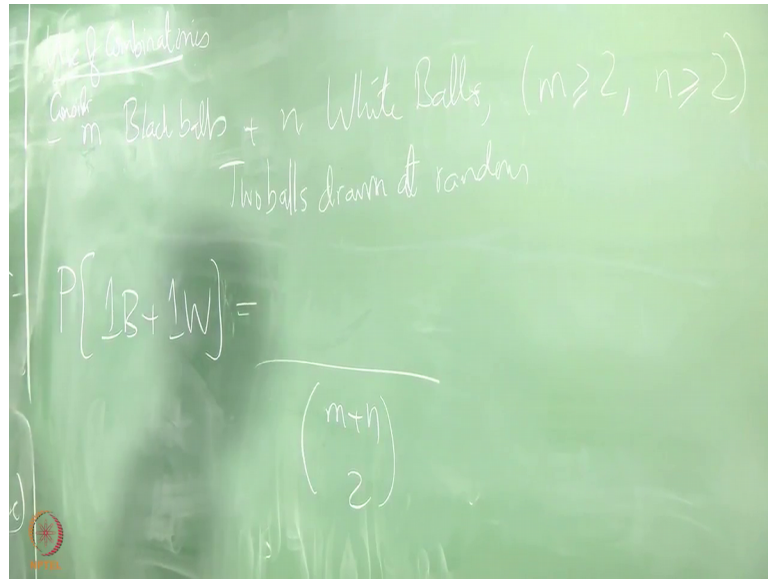 Use of Combinatorics
Consider
- m Black balls + n White Balls, (m ≥ 2, n ≥ 2)
Two balls drawn at random
P[1B + 1W] =
(m+n
2)